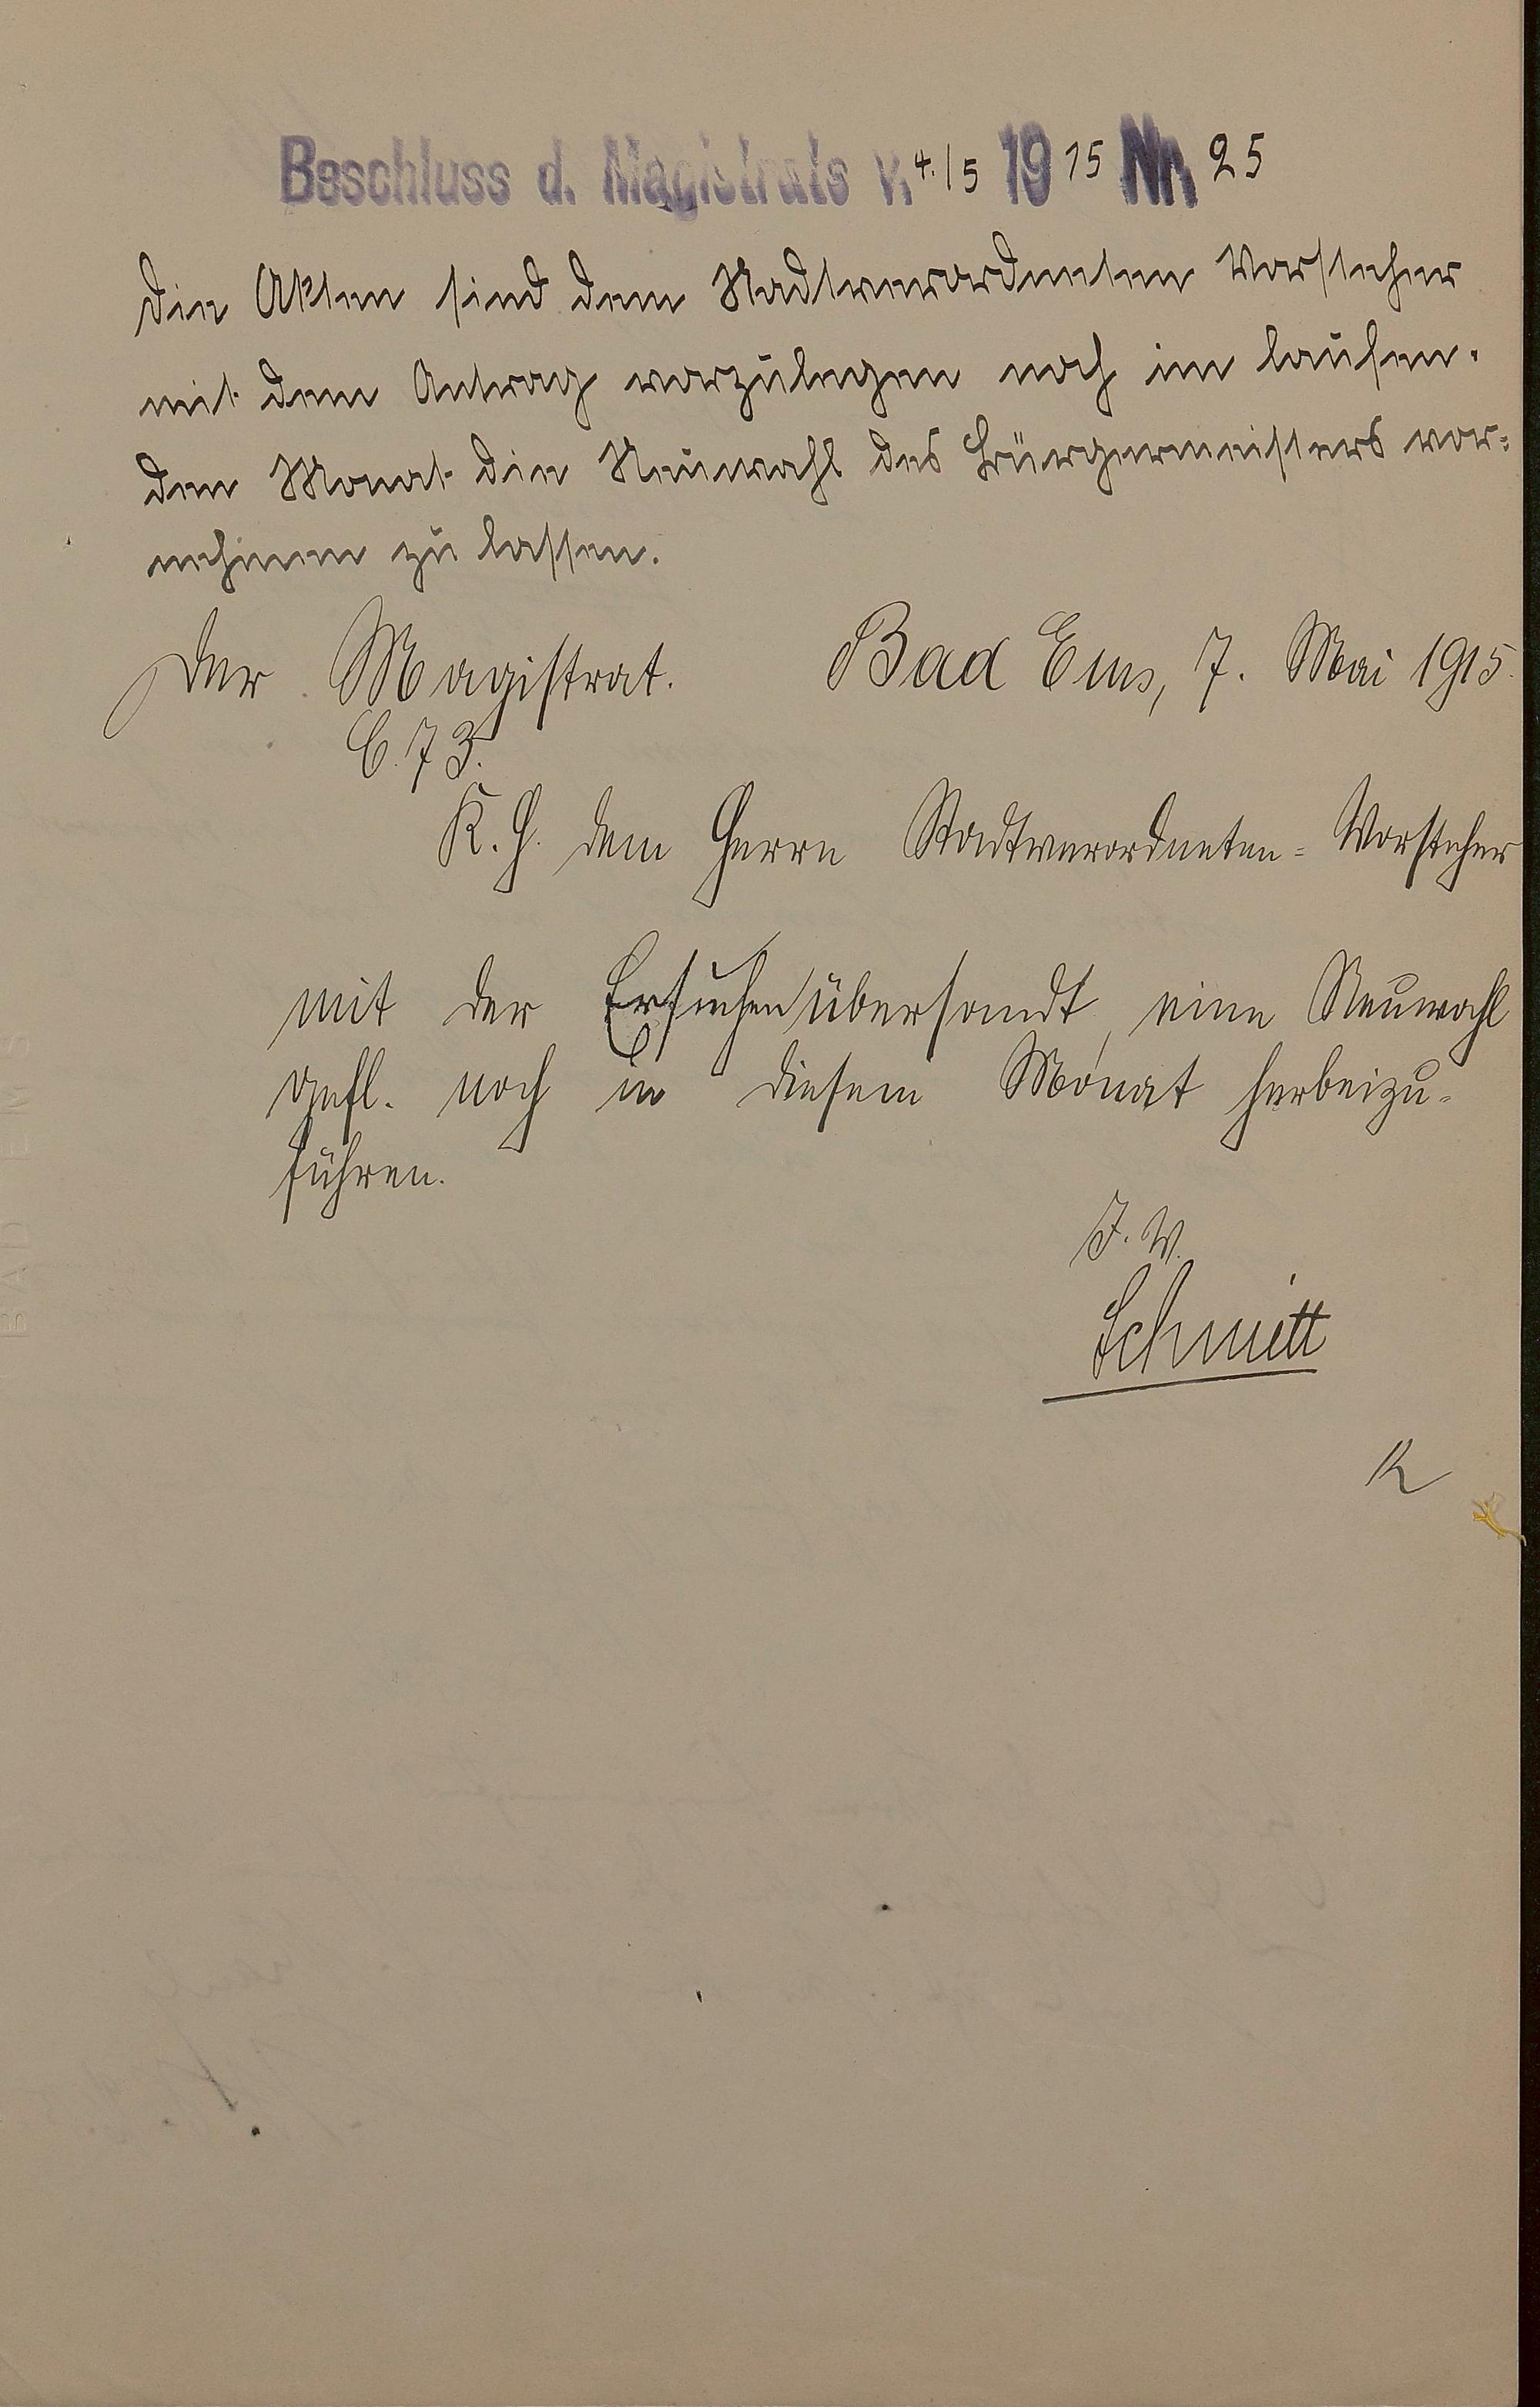 Beschluss d. Magistrats v. 4./5 1915 Nr. 25
Die Akten sind dem Stadtverordneten Vorsteher
mit dem Antrag vorzulegen noch im laufen-
den Monat die Neuwahl des Bürgermeisters vor-
nehmen zu lassen.
Der Magistrat. Bad Ems, 7. Mai 1915.
C. 73.
K. H. dem Herrn Stadtverordneten-Vorsteher
mit der Ersuchen übersandt, eine Neuwahl
gefl. noch in diesem Monat herbeizu-
führen.
J. V.
Schmitt